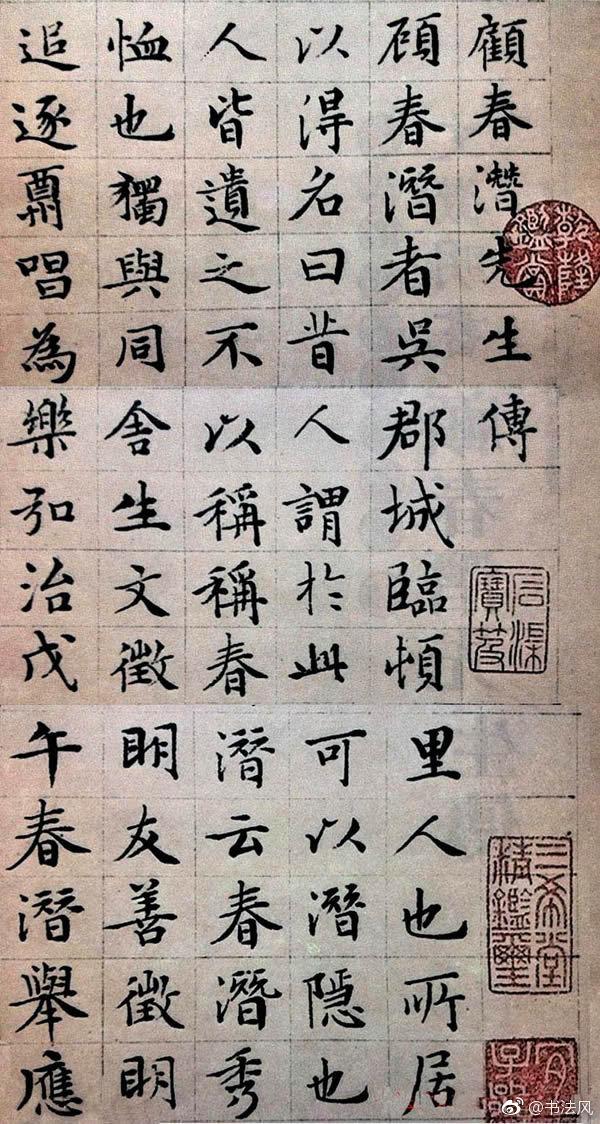 顧春潛先生傳
頋春潛者吳郡城臨頓里人也所居
以得名曰昔人謂於此可以潛隱也
人皆遺之不以稱稱春潛云春潛秀
恤也獨與同舍生文徵明友善徵明
追逐酬唱為樂弘治戊午春潛舉應
乾隆鑑賞
石渠寶笈
三希堂精鑑璽
宜子孫
@书法风